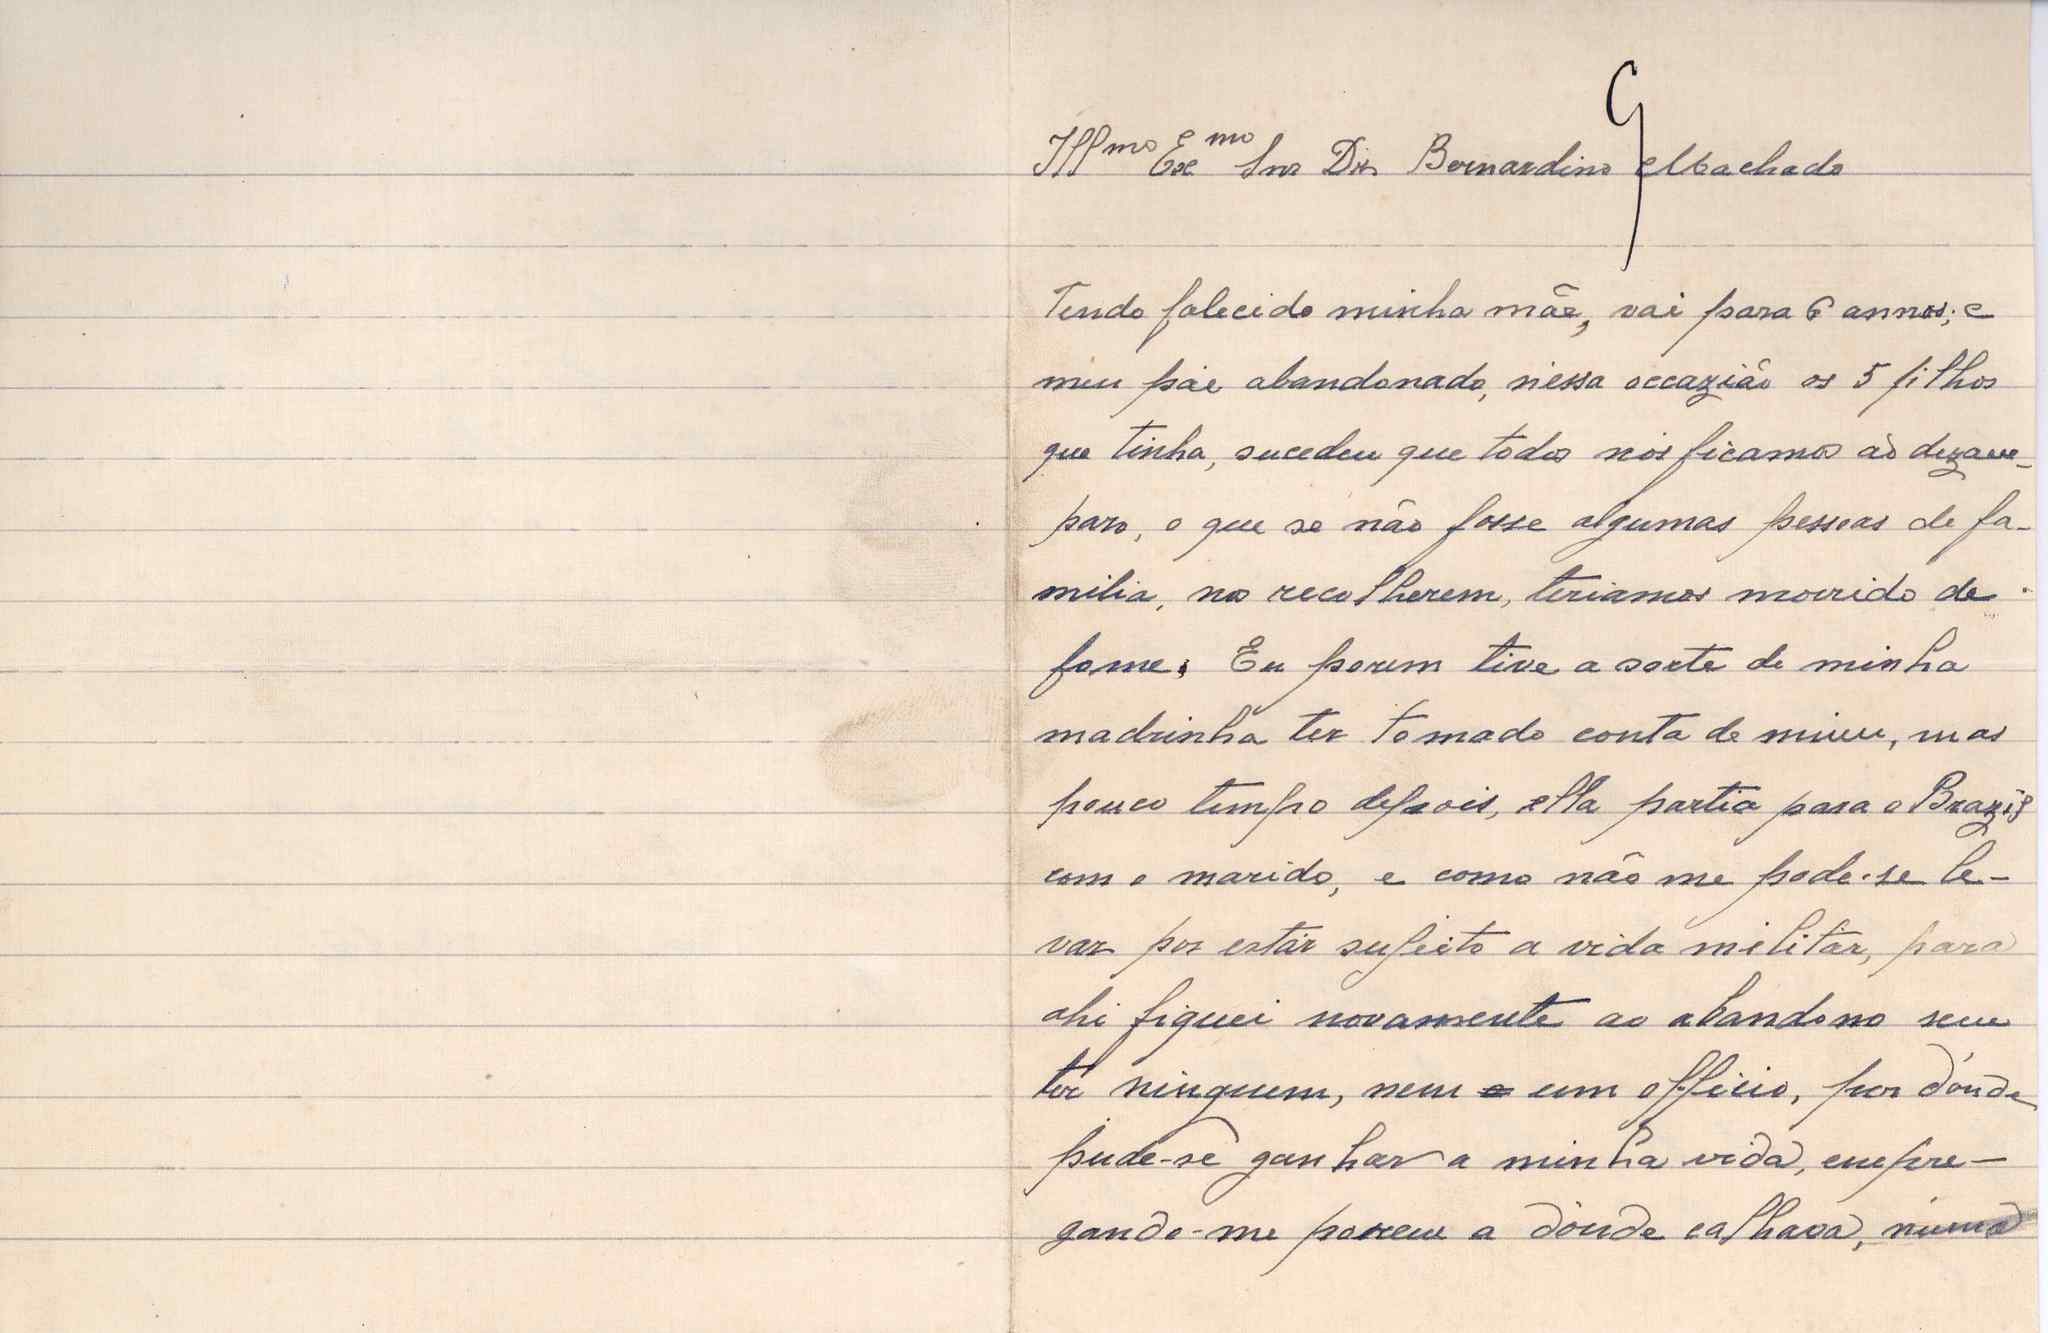 G
Illmo Exmo Snr Dr. Bernardino Machado
Tendo falecido minha mãe, vai para 6 annos, e
meu pae abandonado, nessa occazião os 5 filhos
que tinha, sucedeu que todos nós ficamos aò dezam-
paro, o que se não fosse algumas pessoas de fa-
milia, nos recolherem, teriamos morrido de
fome. Eu porem tive a sorte de minha
madrinha ter tomado conta de mim, mas
pouco tempo depois, ella partia para o Brazil
com o marido, e como não me pode-se le-
var por estár sujeito a vida militár, para
ahi fiquei novamente ao abandono sem
tér ninguem, nem um officio, por dónde
pude-se ganhar a minha vida, empre-
gando-me porem a dónde calhava, numa